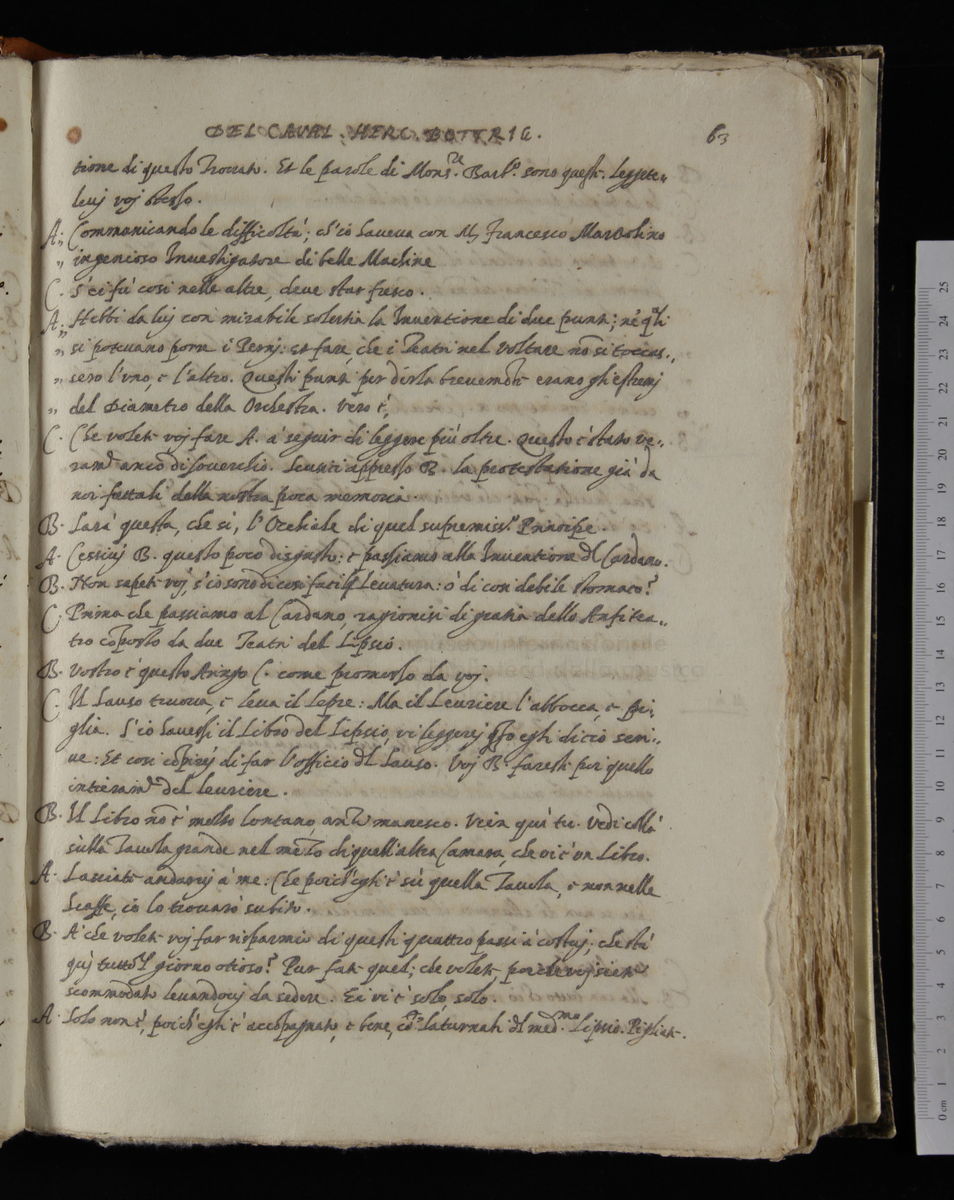 DEL CAVAL. HERC. BOTTRIG. 63
tione di questo Trovato. Et le parole di Mons.re Barb.o sono queste. Leggete„
lenj voj stesso.
A. „ Communicando le difficoltà; ch'io haveva con M. Francesco Marcolino
„ ingenioso Investigatore di belle Machine
C. S'ei fù così nelle altre, deve star fresco.
A. „ Hebbi da luj con mirabile solertia la Inventione di due punti; ne' q.li
„ si potevano porre i Pernj: et fare, che i Teatri nel voltare nō si toccas„
„ sero l'uno, e l'altro. Questi punti per dirla brevemēte erano gli estremj
„ del Diametro della Orchestra. Vero è,
C. Che volete voj fare A. a seguir di leggere più oltre. Questo è stato ve„
ram.te anco di soverchio. appresso B. la protestatione già da
noi fattali della nostra poca memoria.
B. Sarà questa, che sì, l'Occhiale di quel supremiss.o Principe.
A. Cessivj B. questo poco disgusto: e passiamo alla Inventione dl Cardano.
B. Non sapete voj, s'io sono di così facil Levatura: o' di così debile stomaco?
C. Prima che passiamo al Cardano, ragionisi di gratia dello Anfitea„
tro cōposto da due Teatri del Lipsio.
B. Vostro è questo Aringo C. come promesso da voj.
C. Il Sauso truova, e leva il Lepre: Ma il Levriere l'abbocca, e pi„
glia. S'io havessi il Libro del Lipsio, vi leggerej q̄to egli di ciò scri„
ve: Et così cōpirej di far l'officio dl Sauso. Voj B. fareste poi quello
intieram.te del Levriere.
B. Il Libro nō è molto lontano, anzi manesco. Vien quà tu. Vedi collà
sùlla Tavola grande nel mezo di quell'altra Camara, che vi è un Libro.
A. Lasciate andarvj à me: Che poich'egli è sù quella Tavola, e non nelle
Scaffe, io lo trovarò subito.
B. A' che volete voj far risparmio di questi quattro passi à costuj; che stà
quj tutto'l giorno otioso? Pur fate quel; che volete, poiche voj siete
scommodato levandovj da sedere. Ei vi è solo, solo.
A. Solo non è, poich'egli è accōpagnato, e bene, cō i Saturnali dl med.mo Lipsio. Pigliate.